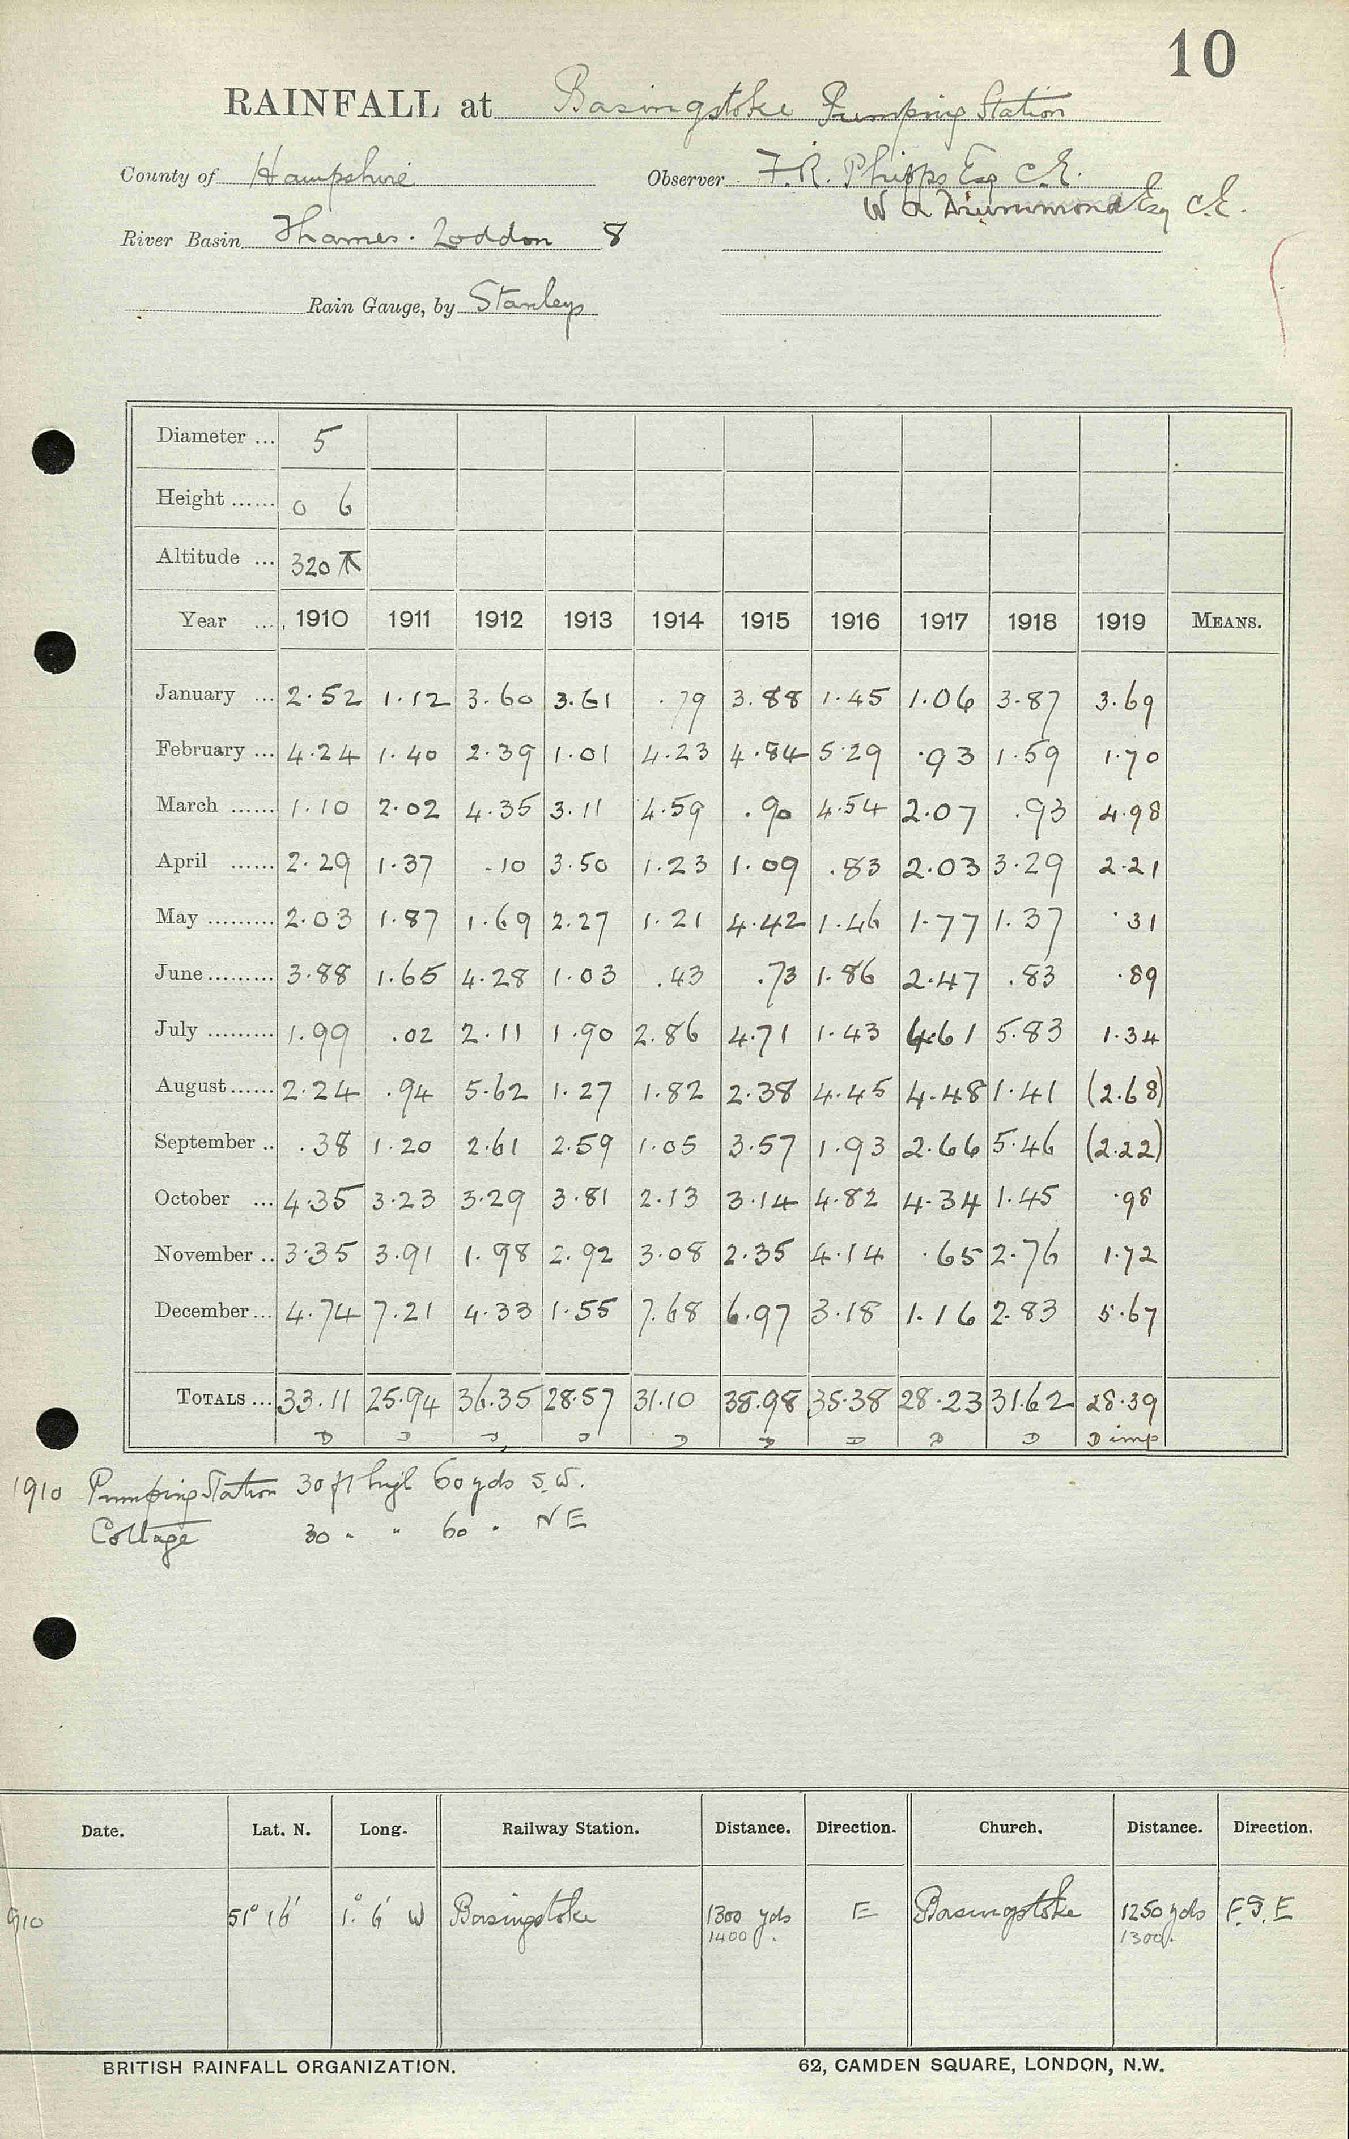 10
RAINFALL at Basingstoke Pumping Station
County of Hampshire Observer F.R. Phipps Esq C.E.
W A Drummond Esq C.E.
River Basin Thames. Loddon 8
Rain Gauge, by Stanleys
Diameter ... 5
Height ...... 0 6
Altitude ... 320
Year .... 1910 1911 1912 1913 1914 1915 1916 1917 1918 1919 MEANS.
January ... 2.52 1.12 3.60 3.61 .79 3.88 1.45 1.06 3.87 3.69
February ... 4.24 1.40 2.39 1.01 4.23 4.84 5.29 .93 1.59 1.70
March ...... 1.10 2.02 4.35 3.11 4.59 .90 4.54 2.07 .93 4.98
April ...... 2.29 1.37 .10 3.50 1.23 1.09 .83 2.03 3.29 2.21
May ......... 2.03 1.87 1.69 2.27 1.21 4.42 1.46 1.77 1.37 .31
June ......... 3.88 1.65 4.28 1.03 .43 .73 1.86 2.47 .83 .89
July ......... 1.99 .02 2.11 1.90 2.86 4.71 1.43 4.61 5.83 1.34
August ...... 2.24 .94 5.62 1.27 1.82 2.38 4.45 4.48 1.41 (2.68)
September .. .38 1.20 2.61 2.59 1.05 3.57 1.93 2.66 5.46 (2.22)
October ... 4.35 3.23 3.29 3.81 2.13 3.14 4.82 4.34 1.45 .98
November .. 3.35 3.91 1.98 2.92 3.08 2.35 4.14 .65 2.76 1.72
December ... 4.74 7.21 4.33 1.55 7.68 6.97 3.18 1.16 2.83 5.67
TOTALS ... 33.11 25.94 36.35 28.57 31.10 38.98 35.38 28.23 31.62 28.39
D D D D D D D D D D imp
1910 Pumping Station 30 ft high 60 yds S.W.
Cottage 30 " " 60 " NE
Date. Lat. N. Long. Railway Station. Distance. Direction. Church. Distance. Direction.
910 51° 16' 1° 6' W Basingstoke 1300 yds E Basingstoke 1250 yds E.S.E
1400 1300
BRITISH RAINFALL ORGANIZATION. 62, CAMDEN SQUARE, LONDON, N.W.